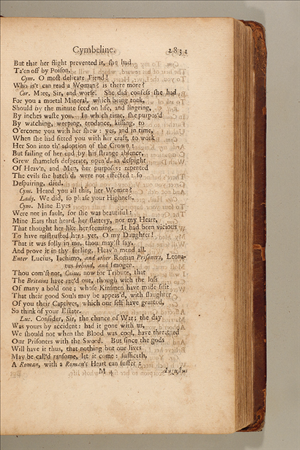 Cymbeline. 2833
But that her flight prevented it, she had
Ta'en off by Poison.
Cym. O most delicate Fiend!
Who is't can read a Woman? is there more?
Cor. More, Sir, and worse. She did confess she had
For you a mortal Mineral, which being took,
Should by the minute feed on life, and lingring,
By inches waste you. In which time, she purpos'd
By watching, weeping, tendance, kissing, to
O'ercome you with her shew: yes, and in time,
When she had fitted you with her craft, to work
Her Son into th' adoption of the Crown:
But failing of her end by his strange absence,
Grew shameless desperate, open'd, in despight
Of Heav'n, and Men, her purposes: repented
The evils she hatch'd, were not effected: so
Despairing, died.
Cym. Heard you all this, her Women?
Lady. We did, so please your Highness.
Cym. Mine Eyes
Were not in fault, for she was beautiful:
Mine Ears that heard her flattery, nor my Heart,
That thought her like her seeming. It had been vicious
To have mistrusted her: yet, O my Daughter!
That it was folly in me, thou may'st say,
And prove it in thy feeling. Heav'n mend all.
Enter Lucius, Iachimo, and other Roman Prisoners, Leona-
tus behind, and Imogen.
Thou com'st not, Caius, now for Tribute, that
The Britains have rac'd out, though with the loss
Of many a bold one; whose Kinsmen have made suit
That their good Souls may be appeas'd, with slaughter
Of you their Captives, which our self have granted,
So think of your Estate.
Luc. Consider, Sir, the chance of War; the day
Was yours by accident: had it gone with us,
We should not when the Blood was cool, have threatned
Our Prisoners with the Sword. But since the gods
Will have it thus, that nothing but our lives
May be call'd ransome, let it come: sufficeth,
A Roman, with a Roman's Heart can suffer: